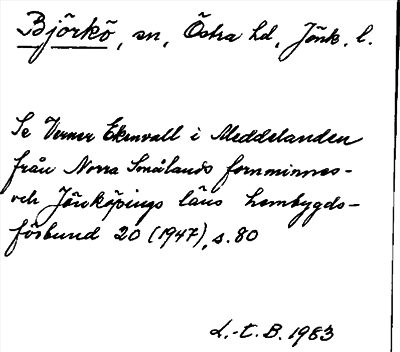 Björkö, sn, Östra hd, Jönk. l.
Se Verner Ekenvall i Meddelanden
från Norra Smålands fornminnes-
och Jönköpings läns hembygds-
förbund 20 (1947), s. 80
L.-t. B. 1983